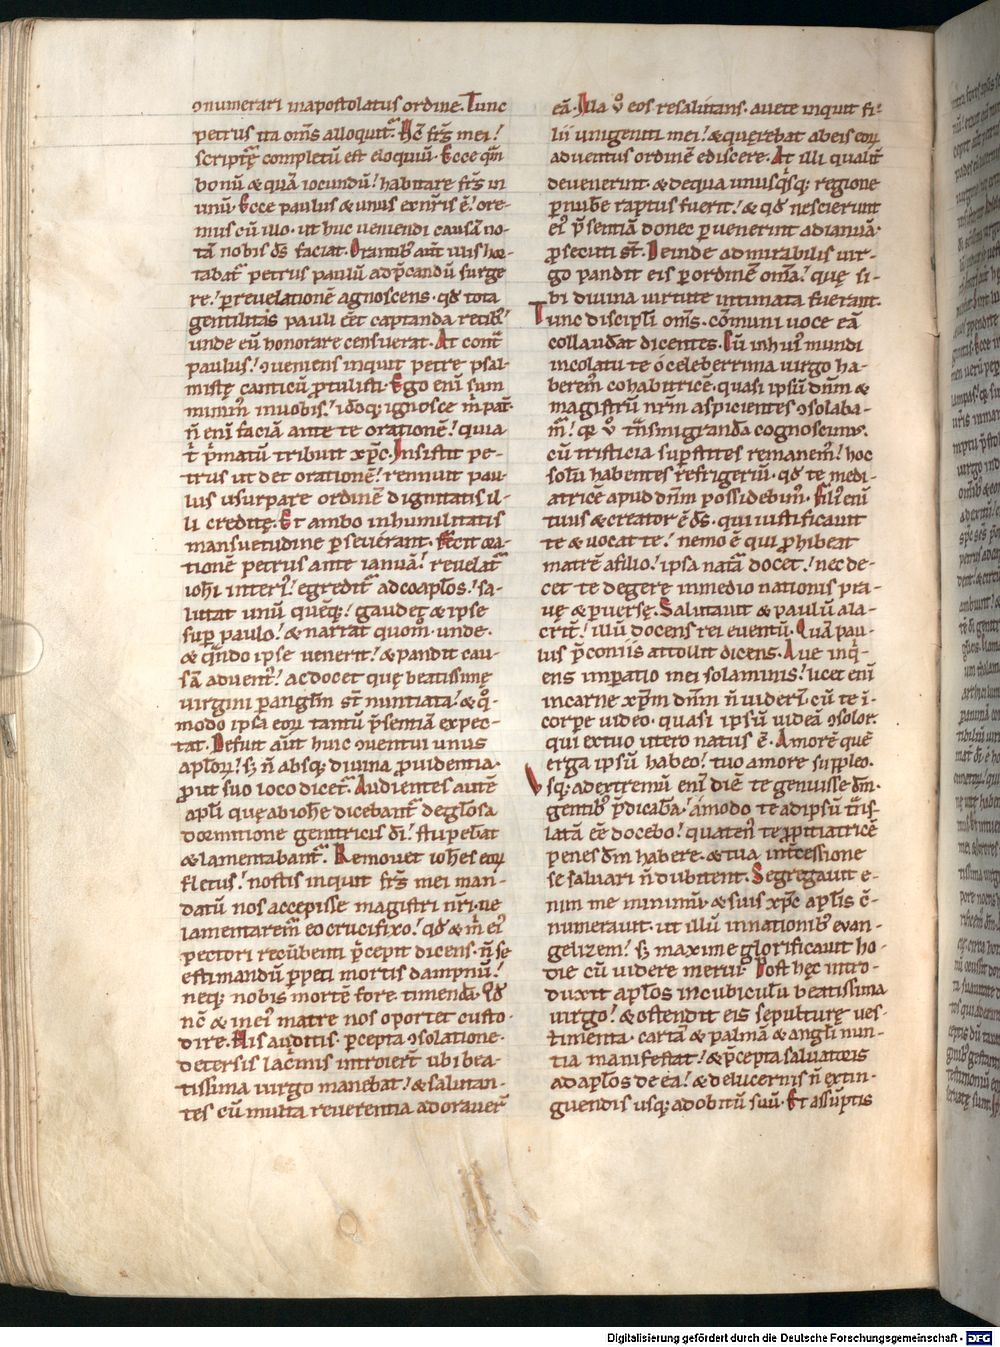 ꝯnumerari inapostolatus ordine. Tunc
petrus ita om̄s alloquit᷑. Ac̄ fr̄s mei!
scriptur̨ę completū est eloquiū. Ecce qm̄
bonū & quā iocundū! habitare fr̄s in
unū. Ecce paulus & unus ex nr̄is ē! ore-
mus cū illo. ut huc veniendi causā no-
tā nobis ds̄ faciat. Orantib; aut̄ illis hor-
tabat᷑ petrus paulū ad p̄candū surge
re! ꝑ revelationē agnoscens. qd̄ tota
gentilitas pauli ēet captanda retib;!
unde eū honorare censuerat. At cont᷑
paulus! ꝯveniens inquit petre psal-
mistę canticū ꝓtulisti. Ego enī sum
minim᷒ in uobis! idoq; ignosce m̄ pat᷑.
n̄ enī faciā ante te orationē! quia
t̄ p̄matū tribuit xp̄c. Insistit pe-
trus ut det orationē! rennuit pau-
lus usurpare ordinē dignitatis il-
li creditę. Et ambo in humilitatis
mansuetudine ꝑseverant. Fecit ora-
tionē petrus ante ianuā! revelat᷑
ioh̄i interi᷒! egredit᷑ ad coap̄los! sa-
lutat unū quēq;! gaudet & ipse
suꝑ paulo! & narrat quom̊. unde.
& qn̄do ipse venerit! & pandit cau-
sā advent᷒! ac docet quę beatissimę
virgini ꝑ angl̄m st̄ nuntiata! & q̊
modo ipsa eoꝝ tantū p̄sentiā expec-
tat. Defuit aut̄ huic ꝯventui unus
apl̄oꝝ! s; n̄ absq; divina ꝓuidentia.
ꝓut suo loco dicet᷑. Audientes autē
apl̄i quę ab ioh̄e dicebant᷑ de gl̄osa
dormitione genitricis dī! stupebāt
& lamentabant᷑. Removet ioh̄es eoꝝ
fletus! nostis inquit fr̄s mei man-
datū nos accepisse magistri nr̄i. ne
lamentarem᷑ eo crucifixo! qd̄ & m̄ ei᷒
pectori recūbenti p̄cepit dicens. n̄ se
estimandū ꝑpeti mortis dampnū!
neq; nobis mortē fore timendā. Qd̄
nc̄ & in ei᷒ matre nos oportet custo-
dire. His auditis. ꝑcepta ꝯsolatione.
detersis lacrimis introier̄t ubi bea-
tissima uirgo manebat! & salutan-
tes cū multa reverentia adoraver̄
eā. Illa v̊ eos resalutans. avete inquit fi-
lii unigeniti mei! & quęrebat ab eis eoꝝ
adventus ordinē ediscere. At illi qualit᷑
devenerint. & de qua unusqsq; regione
ꝑ nubē raptus fuerit! & qd̄ nescierunt
ei᷒ p̄sentiā donec ꝑvenerint ad ianuā.
ꝓsecuti st̄. Deinde admirabilis vir-
go pandit eis ꝑ ordinē om̄a! quę si-
bi divina uirtute intimata fuerant.
Tunc discipl̄i om̄s. cōmuni uoce eā
collaudāt dicentes. Cū in hui᷒ mundi
incolatu te ó celeberrima uirgo ha-
berem᷒ cohabitricē. quasi ipsū dn̄m &
magistrū nr̄m aspicientes ꝯsolaba-
m̄! qr v̊ tn̄smigrandā cognoscim᷒.
cū tristicia suꝑstites remanem᷒! hoc
solū habentes refrigeriū. qd̄ te medi-
atricē apud dn̄m possidebim᷒. fili᷒ enī
tuus & creator ē ds̄. qui iustificauit
te & vocat te! nemo ē qui ꝓhibeat
matrē a filio! ipsa natā docet! nec de-
cet te degere in medio nationis pra-
vę & ꝑversę. Salutavit & paulū ala-
crit᷑! illū docens rei eventū. Quā pau-
lus p̄coniis attollit dicens. Ave inq̇-
ens imꝑatio mei solaminis! licet enī
in carne xp̄m dn̄m n̄ videri. cū te ī
corpe video. quasi ipsū videā ꝯsolor.
qui ex tuo utero natus ē. Amorē quē
erga ipsū habeo! tuo amore suppleo.
Usq; ad extremū enī diē te genuisse dm̄.
gentib; p̄dicabā. ámodo te ad ipsū tn̄s-
latā eē docebo! quaten᷒ te ꝓpitiatricē
penes dm̄ habere. & tua int̄cessione
se saluari n̄ dubitent. Segregavit e-
nim me minimū. & suis xp̄c apl̄is c̄-
numeravit. ut illū in nationib; evan-
gelizem! s; maxime glorificavit ho-
die cū videre merui. Post hęc intro-
duxit apl̄os in cubiculū beatissima
uirgo! & ostendit eis sepulturę ves-
timenta. cartā & palmā & angl̄i nun-
tia manifestat! & p̄cepta saluatoris
ad apl̄os de ea! & de lucernis n̄ extin-
guendis usq; ad obitū suū. Et assūptis
Digitalisierung gefördert durch die Deutsche Forschungsgemeinschaft - DFG